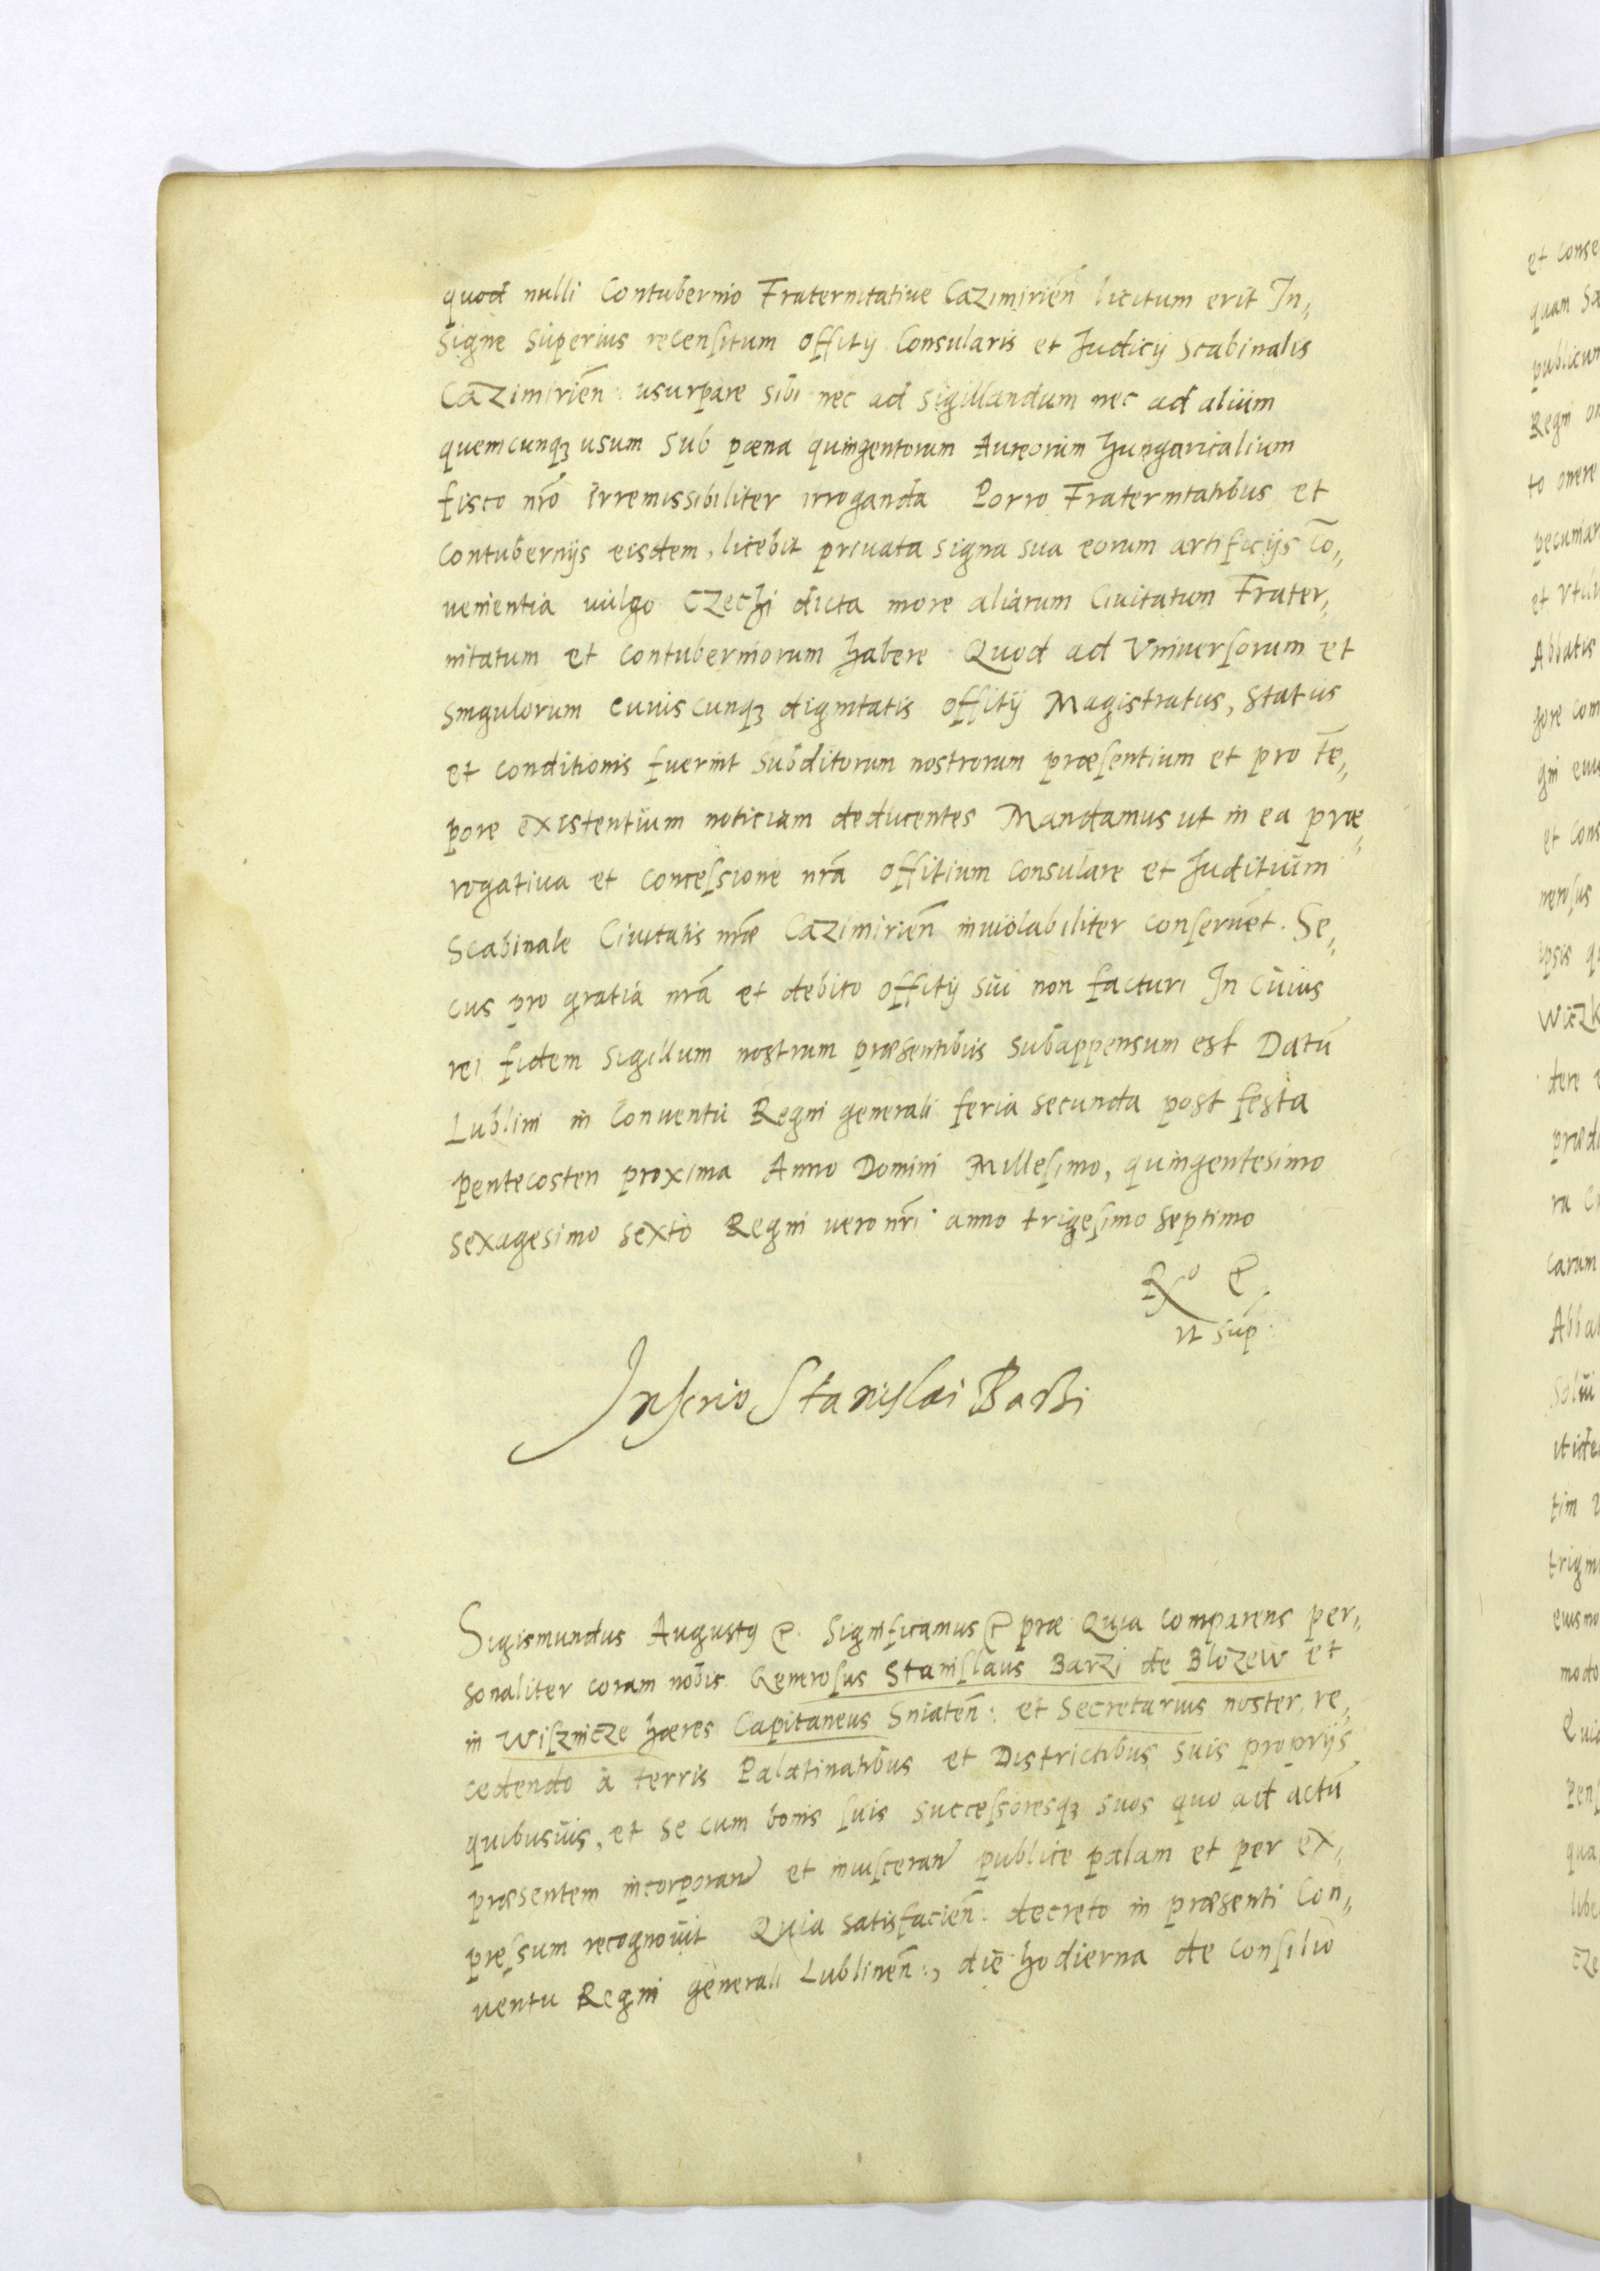 quod nulli Contubernio Fraternitatiue Cazimirień licitum erit In,
signe superius recensitum offitÿ Consularis et Judicÿ scabinalis
Cazimirień: usurpare sibi nec ad sigillandum nec ad alium
quemcunqꝫ usum sub pœna quingentorum Aureorum hungaricalium
fisco nr̃o irremissibiliter irroganda Porro Fraternitatibus et
contubernÿs eisdem, licebit priuata signa sua eorum artificÿs Cō,
uenientia uulgo Czechi dicta more aliarum Ciuitatum Frater,
nitatum et contuberniorum habere Quod ad Vniuersorum et
singulorum cuiuscunqꝫ dignitatis offitÿ Magistratus, status
et conditionis fuerint subditorum nostrorum præsentium et pro tē,
pore existentium noticiam deducentes Mandamus ut in ea præ,
rogatiua et concessione nr̃a offitium consulare et Juditium
scabinale Ciuitatis nr̃æ Cazimirień inuiolabiliter conseruēt. Se,
cus pro gratia nr̃a et debito offitÿ sui non facturi In cuius
rei fidem sigillum nostrum præsentibus subappensum est Datū
Lublini in Conuentu Regni generali feria secunda post festa
pentecosten proxima Anno Domini Millesimo, quingentesimo
sexagesimo sexto Regni uero nr̃i anno trigesimo septimo
ut sup:
Inscrio Stanislai Barzi
Sigismundus Augustꝯ &. Significamus & præ Quia comparens per,
sonaliter coram nobis Generosus Stanislaus Barzi de Blozew et
in Wisznicze hæres Capitaneus Sniateń: et secretarius noster, re,
cedendo a terris Palatinatibus et Districtibus suis proprÿs
quibusuis, et se cum bonis suis successoresqꝫ suos quo ad actū
præsentem incorporan̄ et inuisceran̄ publice palam et per ex,
pressum recognouit Quia satisfacień: decreto in præsenti Con,
uentu Regni generali Lublineń:, die hodierna de consilio